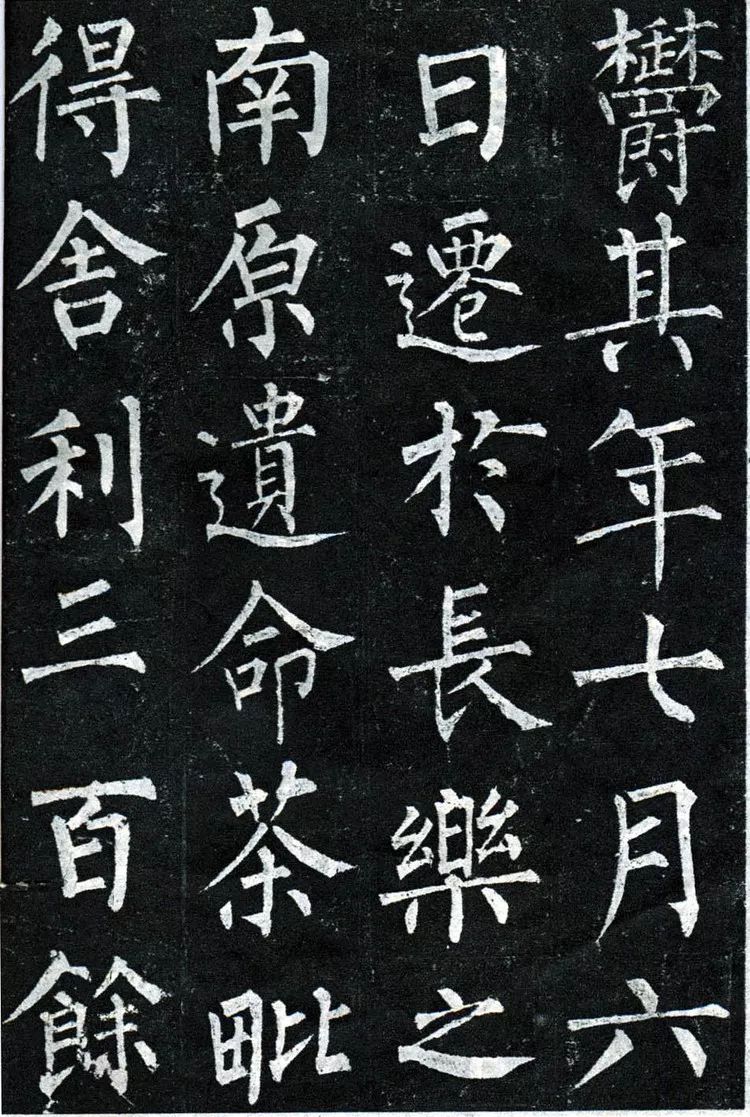 欝其年七月六
日遷於長樂之
南原遺命茶毗
得舍利三百餘